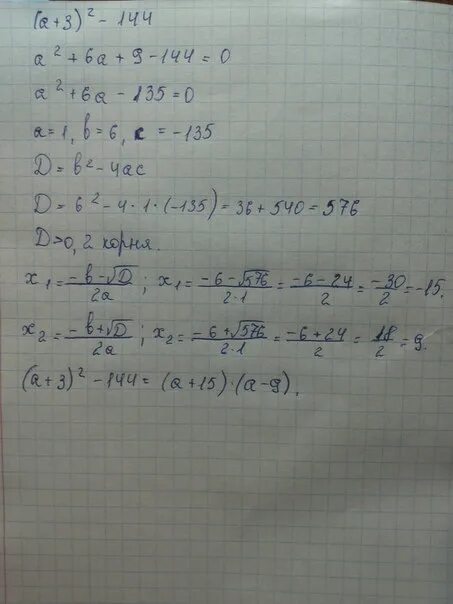 (a+3)² - 144
a² + 6a + 9 - 144 = 0
a² + 6a - 135 = 0
a=1, b=6, c = -135
D = b² - 4ac
D = 6² - 4·1·(-135) = 36 + 540 = 576
D>0, 2 корня.
x₁ = (-b-√D)/2a ; x₁ = (-6-√576)/2·1 = (-6-24)/2 = -30/2 = -15.
x₂ = (-b+√D)/2a ; x₂ = (-6+√576)/2·1 = (-6+24)/2 = 18/2 = 9.
(a+3)² - 144 = (a+15)·(a-9).